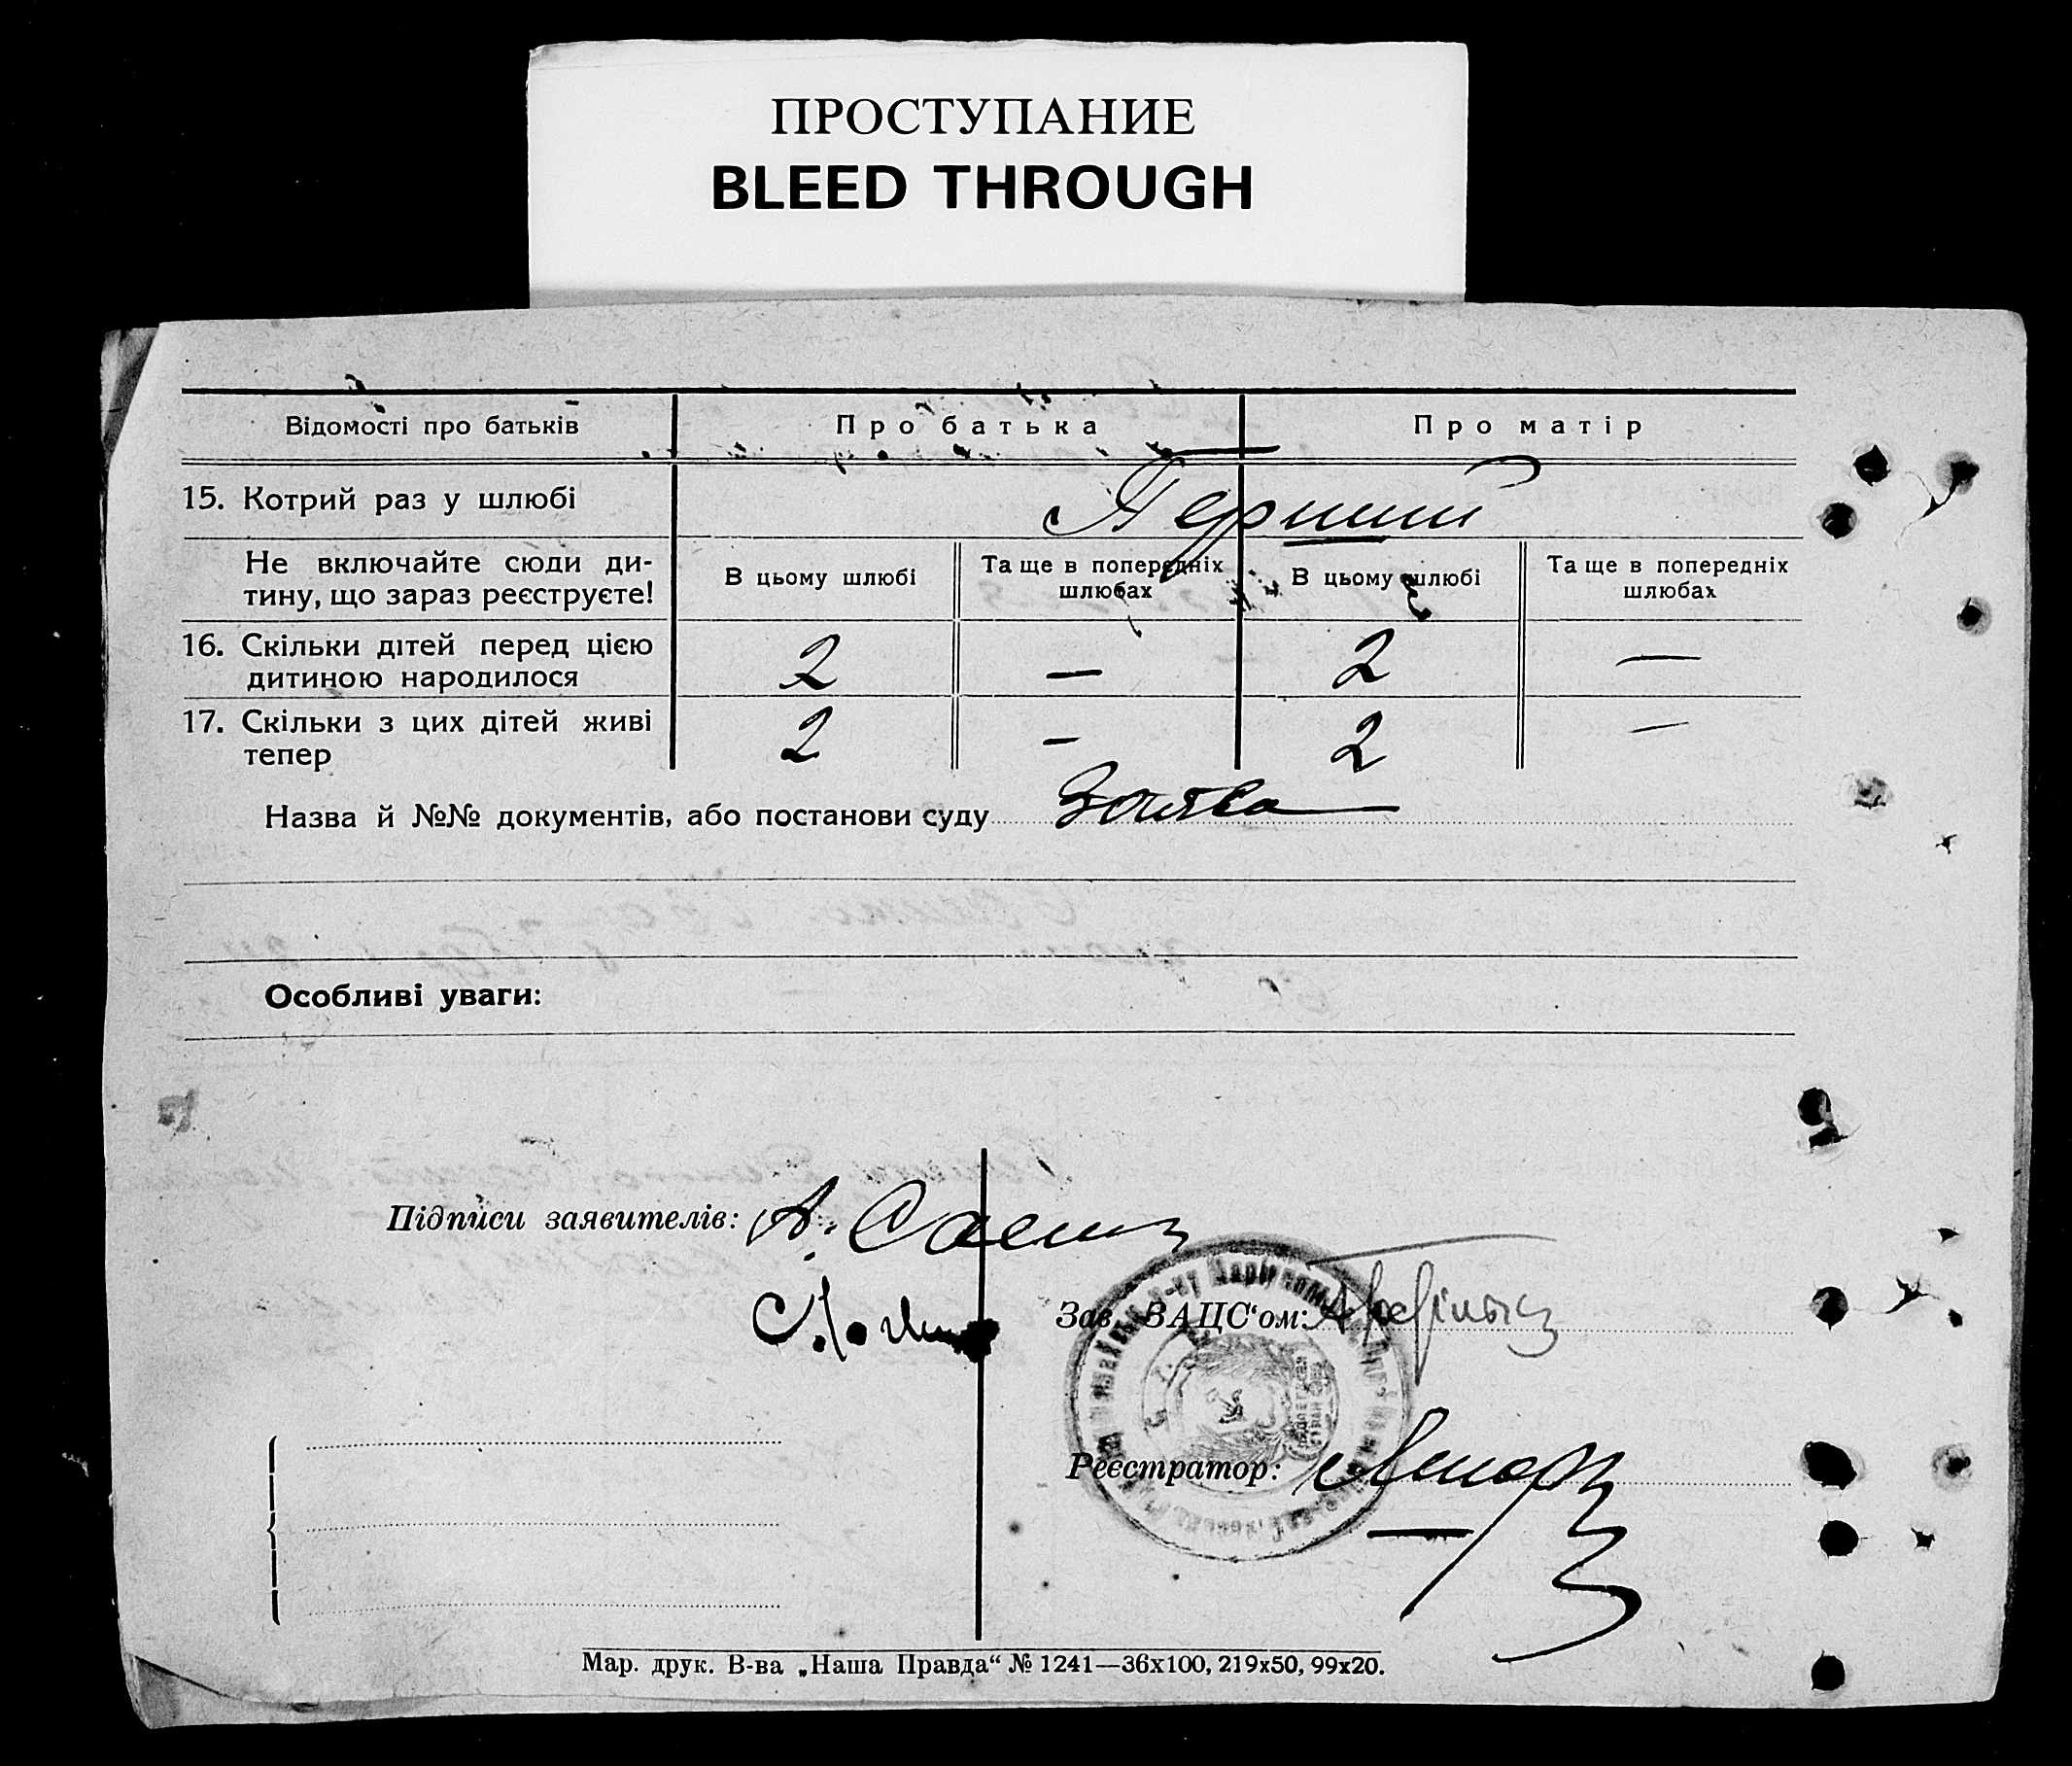 ПРОСТУПАНИЕ
BLEED THROUGH
Відомості про батьків Про батька Про матір
15. Котрий раз у шлюбі Перший
Не включайте сюди ди-
тину, що зараз реєструєте!
В цьому шлюбі
Та ще в попередніх
шлюбах
В цьому шлюбі
Та ще в попередніх
шлюбах
16. Скільки дітей перед цією
дитиною народилося 2 — 2 —
17. Скільки з цих дітей живі
тепер 2 — 2 —
Назва й №№ документів, або постанови суду
Особливі уваги:
Підписи заявителів:
Зав. ВАЦС‘ом:
Реєстратор:
Мар. друк. В-ва „Наша Правда“ № 1241—36х100, 219х50, 99х20.